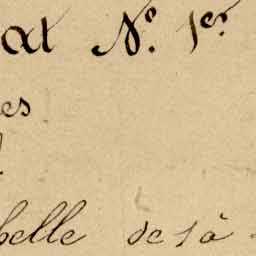 at N.º 1.er
es
belle de 1 à